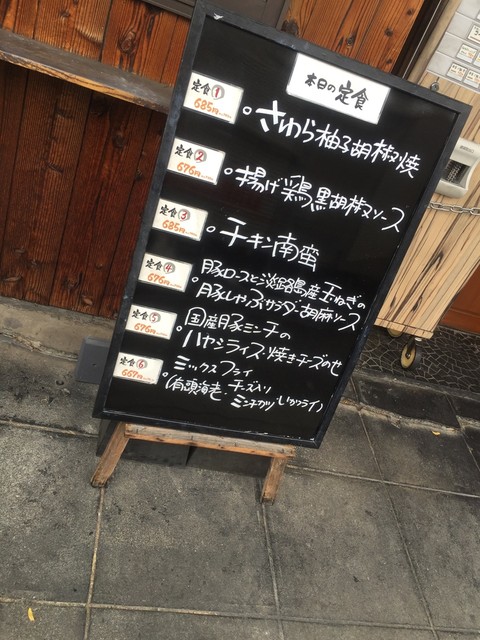 本日の定食
定食① 685円
さわら柚子胡椒焼
定食② 676円
揚げ鶏黒胡椒ソース
定食③ 685円
チキン南蛮
定食④ 676円
豚ロースと淡路島産玉ねぎの
豚しゃぶサラダ・胡麻ソース
定食⑤ 676円
国産豚ミンチの
ハヤシライス・焼きチーズのせ
定食⑥ 667円
ミックスフライ
(有頭海老・チーズ入り
ミンチカツ・いかフライ)